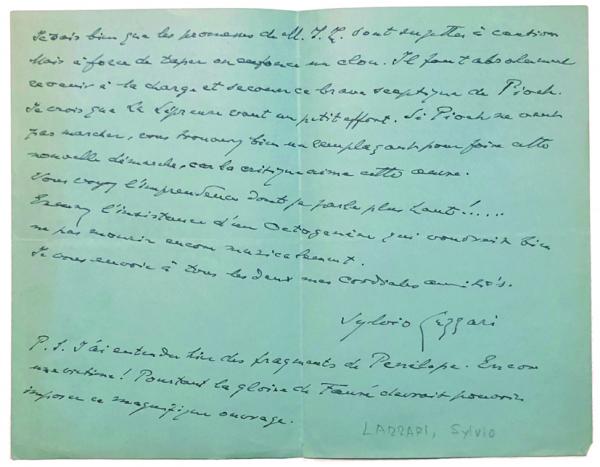 Je sais bien que les promesses de M. J. R. sont sujettes à caution
Mais à force de taper on enfonce un clou. Il faut absolument
revenir à la charge et secouer ce brave sceptique de Pioch.
Je crois que La Lépreuse vaut un petit effort. Si Pioch ne veut
pas marcher, vous trouverez bien un remplaçant pour faire cette
nouvelle démarche, car la critique aime cette œuvre.
Vous voyez l'imprudence dont je parle plus haut!.....
Excusez l'insistance d'un Octogénaire qui voudrait bien
ne pas mourir encore musicalement.
Je vous envoie à tous les deux mes cordiales amitiés.
Sylvio Lazzari
P.S. J'ai entendu hier des fragments de Pénélope. Encore
une victime! Pourtant la gloire de Fauré devrait pouvoir
imposer ce magnifique ouvrage.
LAZZARI, Sylvio